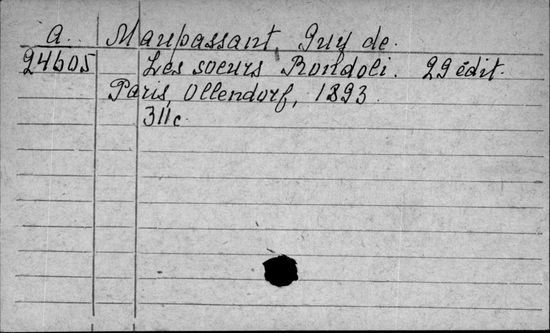 A. Maupassant, Guy de.
24605 Les soeurs Rondoli. 29 édit.
Paris, Ollendorf, 1893.
311 c.